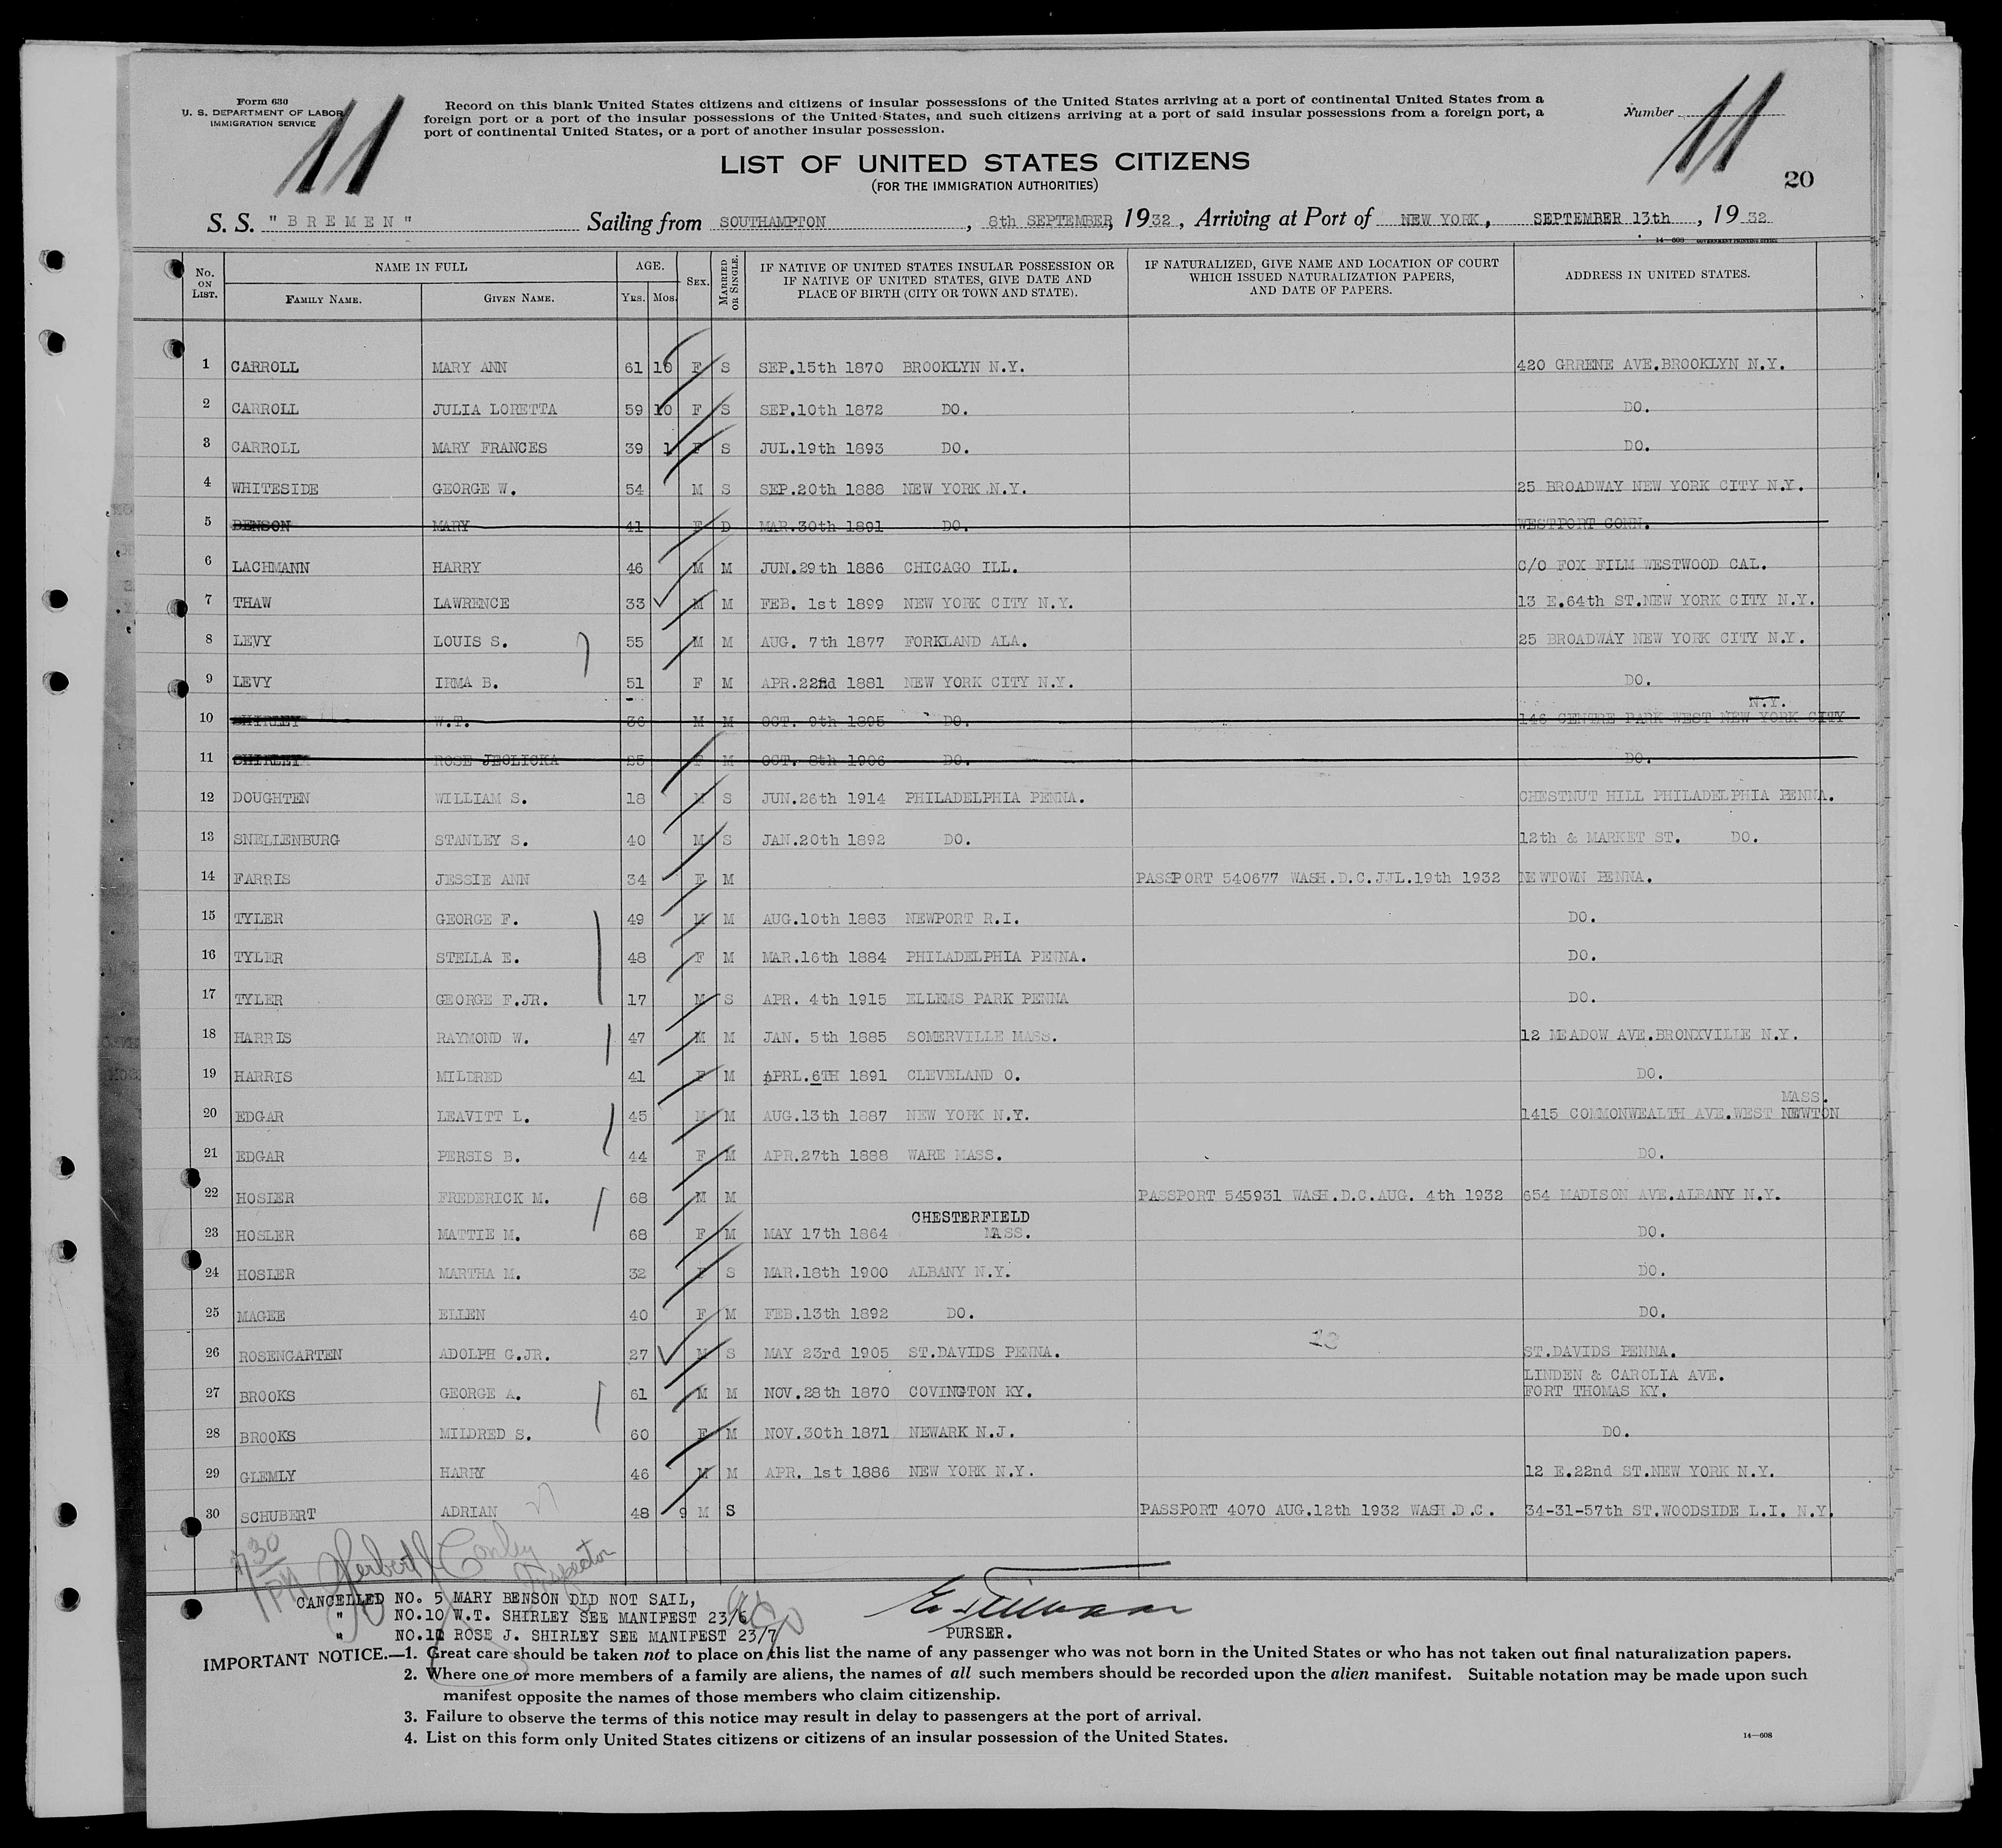 Form 630
U. S. DEPARTMENT OF LABOR
IMMIGRATION SERVICE
11
Record on this blank United States citizens and citizens of insular possessions of the United States arriving at a port of continental United States from a
foreign port or a port of the insular possessions of the United States, and such citizens arriving at a port of said insular possessions from a foreign port, a
port of continental United States, or a port of another insular possession.
Number 11
20
LIST OF UNITED STATES CITIZENS
(FOR THE IMMIGRATION AUTHORITIES)
S. S. "BREMEN" Sailing from SOUTHAMPTON, 8th SEPTEMBER, 1932, Arriving at Port of NEW YORK, SEPTEMBER 13th, 1932
14—608 GOVERNMENT PRINTING OFFICE
No. ON LIST. NAME IN FULL FAMILY NAME. GIVEN NAME. AGE. YRS. MOS. SEX. MARRIED OR SINGLE. IF NATIVE OF UNITED STATES INSULAR POSSESSION OR IF NATIVE OF UNITED STATES, GIVE DATE AND PLACE OF BIRTH (CITY OR TOWN AND STATE). IF NATURALIZED, GIVE NAME AND LOCATION OF COURT WHICH ISSUED NATURALIZATION PAPERS, AND DATE OF PAPERS. ADDRESS IN UNITED STATES.
1 CARROLL MARY ANN 61 10 F S SEP.15th 1870 BROOKLYN N.Y. 420 GRRENE AVE.BROOKLYN N.Y.
2 CARROLL JULIA LORETTA 59 10 F S SEP.10th 1872 DO. DO.
3 CARROLL MARY FRANCES 39 1 F S JUL.19th 1893 DO. DO.
4 WHITESIDE GEORGE W. 54 M S SEP.20th 1888 NEW YORK N.Y. 25 BROADWAY NEW YORK CITY N.Y.
5 BENSON MARY 41 F D MAR.30th 1891 DO. WESTPORT CONN.
6 LACHMANN HARRY 46 M M JUN.29th 1886 CHICAGO ILL. C/O FOX FILM WESTWOOD CAL.
7 THAW LAWRENCE 33 M M FEB. 1st 1899 NEW YORK CITY N.Y. 13 E.64th ST.NEW YORK CITY N.Y.
8 LEVY LOUIS S. 55 M M AUG. 7th 1877 FORKLAND ALA. 25 BROADWAY NEW YORK CITY N.Y.
9 LEVY IRMA B. 51 F M APR.22nd 1881 NEW YORK CITY N.Y. DO.
10 SHIRLEY W.T. 36 M M OCT. 9th 1895 DO. 146 CENTRE PARK WEST NEW YORK CITY N.Y.
11 SHIRLEY ROSE JEOLICKA 25 F M OCT. 8th 1906 DO. DO.
12 DOUGHTEN WILLIAM S. 18 M S JUN.26th 1914 PHILADELPHIA PENNA. CHESTNUT HILL PHILADELPHIA PENNA.
13 SNELLENBURG STANLEY S. 40 M S JAN.20th 1892 DO. 12th & MARKET ST. DO.
14 FARRIS JESSIE ANN 34 F M PASSPORT 540677 WASH.D.C.JJL.19th 1932 NEWTOWN PENNA.
15 TYLER GEORGE F. 49 M M AUG.10th 1883 NEWPORT R.I. DO.
16 TYLER STELLA E. 48 F M MAR.16th 1884 PHILADELPHIA PENNA. DO.
17 TYLER GEORGE F.JR. 17 M S APR. 4th 1915 ELLEMS PARK PENNA DO.
18 HARRIS RAYMOND W. 47 M M JAN. 5th 1885 SOMERVILLE MASS. 12 MEADOW AVE.BRONXVILLE N.Y.
19 HARRIS MILDRED 41 F M APRL.6TH 1891 CLEVELAND O. DO.
20 EDGAR LEAVITT L. 45 M M AUG.13th 1887 NEW YORK N.Y. 1415 COMMONWEALTH AVE.WEST NEWTON MASS.
21 EDGAR PERSIS B. 44 F M APR.27th 1888 WARE MASS. DO.
22 HOSLER FREDERICK M. 68 M M PASSPORT 545931 WASH.D.C.AUG. 4th 1932 654 MADISON AVE.ALBANY N.Y.
23 HOSLER MATTIE M. 68 F M MAY 17th 1864 CHESTERFIELD MASS. DO.
24 HOSLER MARTHA M. 32 F S MAR.18th 1900 ALBANY N.Y. DO.
25 MAGEE ELLEN 40 F M FEB.13th 1892 DO. DO.
26 ROSENGARTEN ADOLPH G.JR. 27 M S MAY 23rd 1905 ST.DAVIDS PENNA. ST.DAVIDS PENNA.
27 BROOKS GEORGE A. 61 M M NOV.28th 1870 COVINGTON KY. LINDEN & CAROLIA AVE. FORT THOMAS KY.
28 BROOKS MILDRED S. 60 F M NOV.30th 1871 NEWARK N.J. DO.
29 GLEMLY HARRY 46 M M APR. 1st 1886 NEW YORK N.Y. 12 E.22nd ST.NEW YORK N.Y.
30 SCHUBERT ADRIAN 48 9 M S PASSPORT 4070 AUG.12th 1932 WASH.D.C. 34-31-57th ST.WOODSIDE L.I. N.Y.
7 30 PM Herbert J Conley Inspector
CANCELLED NO. 5 MARY BENSON DID NOT SAIL,
" NO.10 W.T. SHIRLEY SEE MANIFEST 23/6
" NO.11 ROSE J. SHIRLEY SEE MANIFEST 23/7
PURSER.
IMPORTANT NOTICE.—1. Great care should be taken not to place on this list the name of any passenger who was not born in the United States or who has not taken out final naturalization papers.
2. Where one or more members of a family are aliens, the names of all such members should be recorded upon the alien manifest. Suitable notation may be made upon such
manifest opposite the names of those members who claim citizenship.
3. Failure to observe the terms of this notice may result in delay to passengers at the port of arrival.
4. List on this form only United States citizens or citizens of an insular possession of the United States.
14—608